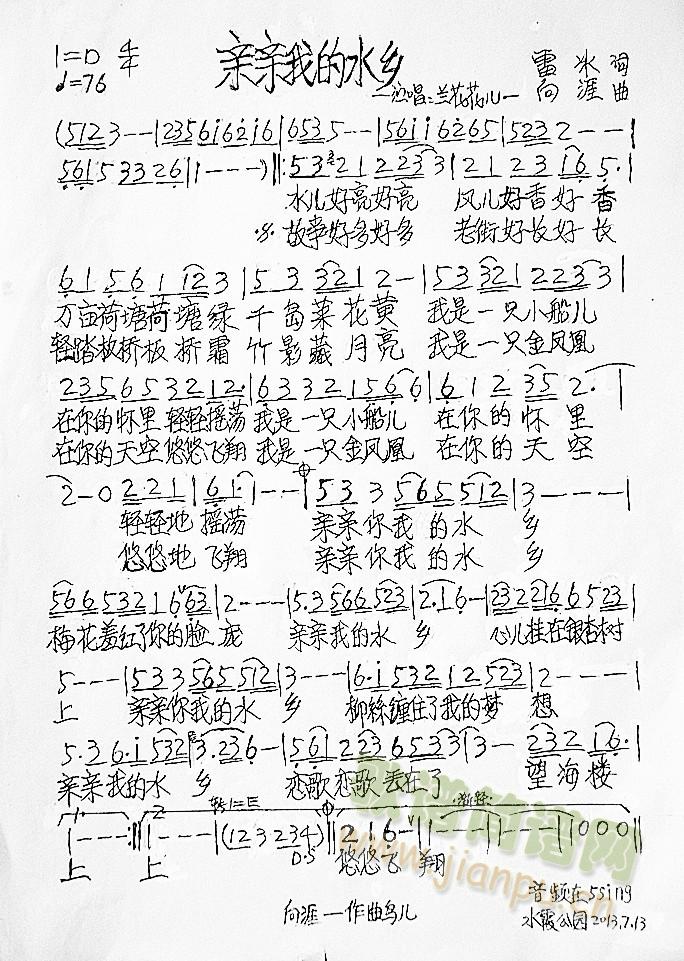 1=D 4/4
♩=76
亲亲我的水乡
—演唱：兰花花儿—
雷 冰 词
向 涯 曲
(5 1 2 3 - - | 2 3 5 6 i 6 2 i 6 | 6 5 3 5 - - | 5 6 i i 6 2 6 5 | 5 2 3 2 - - - |
5 6 1 5 3 3 2 6 | 1 - - - ) ‖: 5 3 2 1 2 2 3 3 | 2 1 2 3 1 6 5 · |
水儿好亮好亮 风儿好香好香
故事好多好多 老街好长好长
6 1 5 6 1 1 2 3 | 5 3 3 2 1 2 - | 5 3 3 2 1 2 2 3 3 |
万亩荷塘荷塘绿 千岛菜花黄 我是一只小船儿
轻踏板桥板桥霜 竹影藏月亮 我是一只金凤凰
2 3 5 6 5 3 2 1 2 · | 6 3 3 2 1 5 6 6 | 6 1 2 3 5 2 · |
在你的怀里轻轻摇荡 我是一只小船儿 在你的怀里
在你的天空悠悠飞翔 我是一只金凤凰 在你的天空
2 - 0 2 2 1 | 6 1 · | 1 - - - | 5 3 3 5 6 5 5 1 2 | 3 - - - |
轻轻地 摇荡 亲亲你我的水乡
悠悠地 飞翔 亲亲你我的水乡
5 6 6 5 3 2 1 6 6 3 | 2 - - - | 5 . 3 5 6 6 5 2 3 | 2 . 1 6 - | 2 3 2 2 1 6 6 5 2 3 |
梅花羞红了你的脸庞 亲亲我的水乡 心儿挂在银杏树
5 - - - | 5 3 3 5 6 5 5 1 2 | 3 - - - | 6 . i 5 3 2 1 2 5 2 3 | 2 - - - |
上 亲亲你我的水乡 柳丝缠住了我的梦想
5 . 3 6 . i 5 3 2 | 3 . 2 3 6 - | 5 6 1 2 2 3 6 5 3 3 | 3 - 2 3 2 1 6 · |
亲亲我的水乡 恋歌恋歌丢在了 望海楼
转1=E 渐轻
1 - - - :‖ 1 - - - | (1 2 3 2 3 4) ‖ 2 1 6 - ∨ | 1 - - - | 1 - - - | 1 0 0 0 ‖
D.S
上 上 悠悠飞 翔
歌谱简谱网
www.jianpu.cn
向涯—作曲鸟儿
音频在5sing
水霞公园2013.7.13